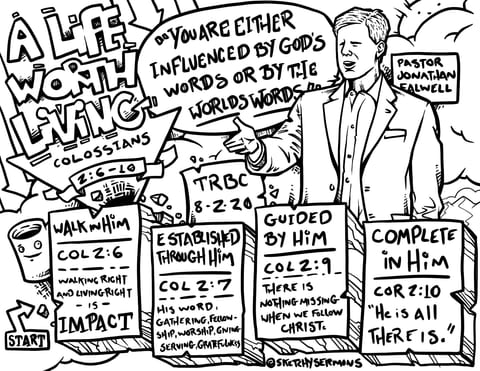 A LIFE
WORTH
LIVING
COLOSSIANS
2:6-10
"YOU ARE EITHER
INFLUENCED BY GOD'S
WORDS OR BY THE
WORLDS WORDS."
PASTOR
JONATHAN
FALWELL
TRBC
8-2-20
WALK IN HIM
COL 2:6
WALKING RIGHT
AND LIVING RIGHT
IS
IMPACT
ESTABLISHED
THROUGH HIM
COL 2:7
HIS WORD,
GATHERING, FELLOW-
SHIP, WORSHIP, GIVING
SERVING, GRATEFULNESS
GUIDED
BY HIM
COL 2:9
THERE IS
NOTHING MISSING
WHEN WE FOLLOW
CHRIST.
COMPLETE
IN HIM
COR 2:10
"HE IS ALL
THERE IS."
START
@SKETCHYSERMONS